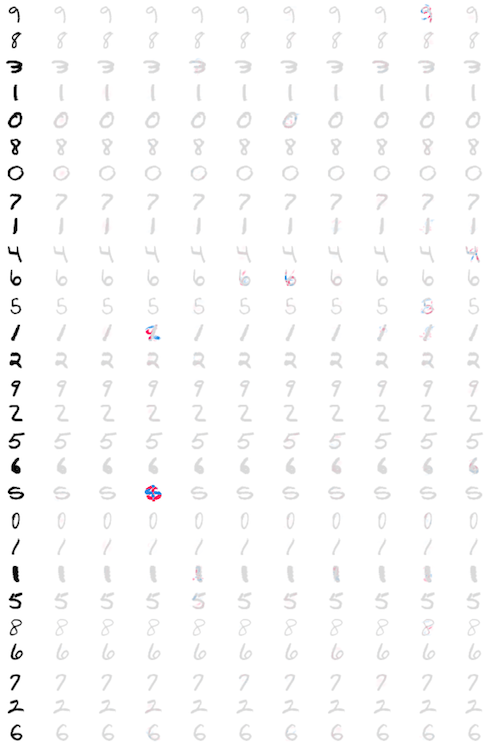 9 9 9 9 9 9 9 9 9 9 9
8 8 8 8 8 8 8 8 8 8 8
3 3 3 3 3 3 3 3 3 3 3
1 1 1 1 1 1 1 1 1 1 1
0 0 0 0 0 0 0 0 0 0 0
8 8 8 8 8 8 8 8 8 8 8
0 0 0 0 0 0 0 0 0 0 0
7 7 7 7 7 7 7 7 7 7 7
1 1 1 1 1 1 1 1 1 1 1
4 4 4 4 4 4 4 4 4 4 4
6 6 6 6 6 6 6 6 6 6 6
5 5 5 5 5 5 5 5 5 5 5
1 1 1 1 1 1 1 1 1 1 1
2 2 2 2 2 2 2 2 2 2 2
9 9 9 9 9 9 9 9 9 9 9
2 2 2 2 2 2 2 2 2 2 2
5 5 5 5 5 5 5 5 5 5 5
6 6 6 6 6 6 6 6 6 6 6
5 5 5 5 5 5 5 5 5 5 5
0 0 0 0 0 0 0 0 0 0 0
1 1 1 1 1 1 1 1 1 1 1
1 1 1 1 1 1 1 1 1 1 1
5 5 5 5 5 5 5 5 5 5 5
8 8 8 8 8 8 8 8 8 8 8
6 6 6 6 6 6 6 6 6 6 6
7 7 7 7 7 7 7 7 7 7 7
2 2 2 2 2 2 2 2 2 2 2
6 6 6 6 6 6 6 6 6 6 6